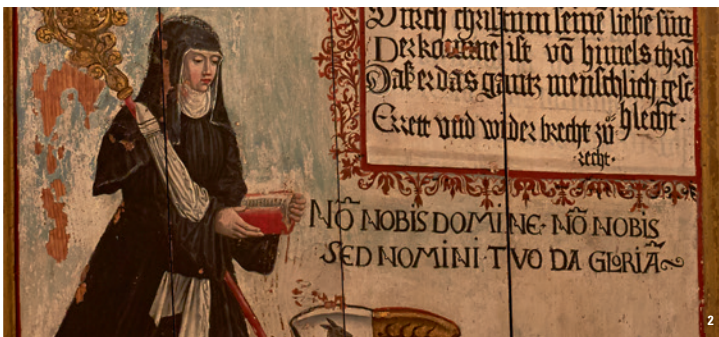 Durch christum seinē liebē sun
Der komme ist vō himels thrō
Daß er das gantz menschlich gesc
hlecht·
Errett vnd wider brecht zu
recht·
NŌ NOBIS DOMINE· NŌ NOBIS
SED NOMINI·TVO DA GLORIĀ
2